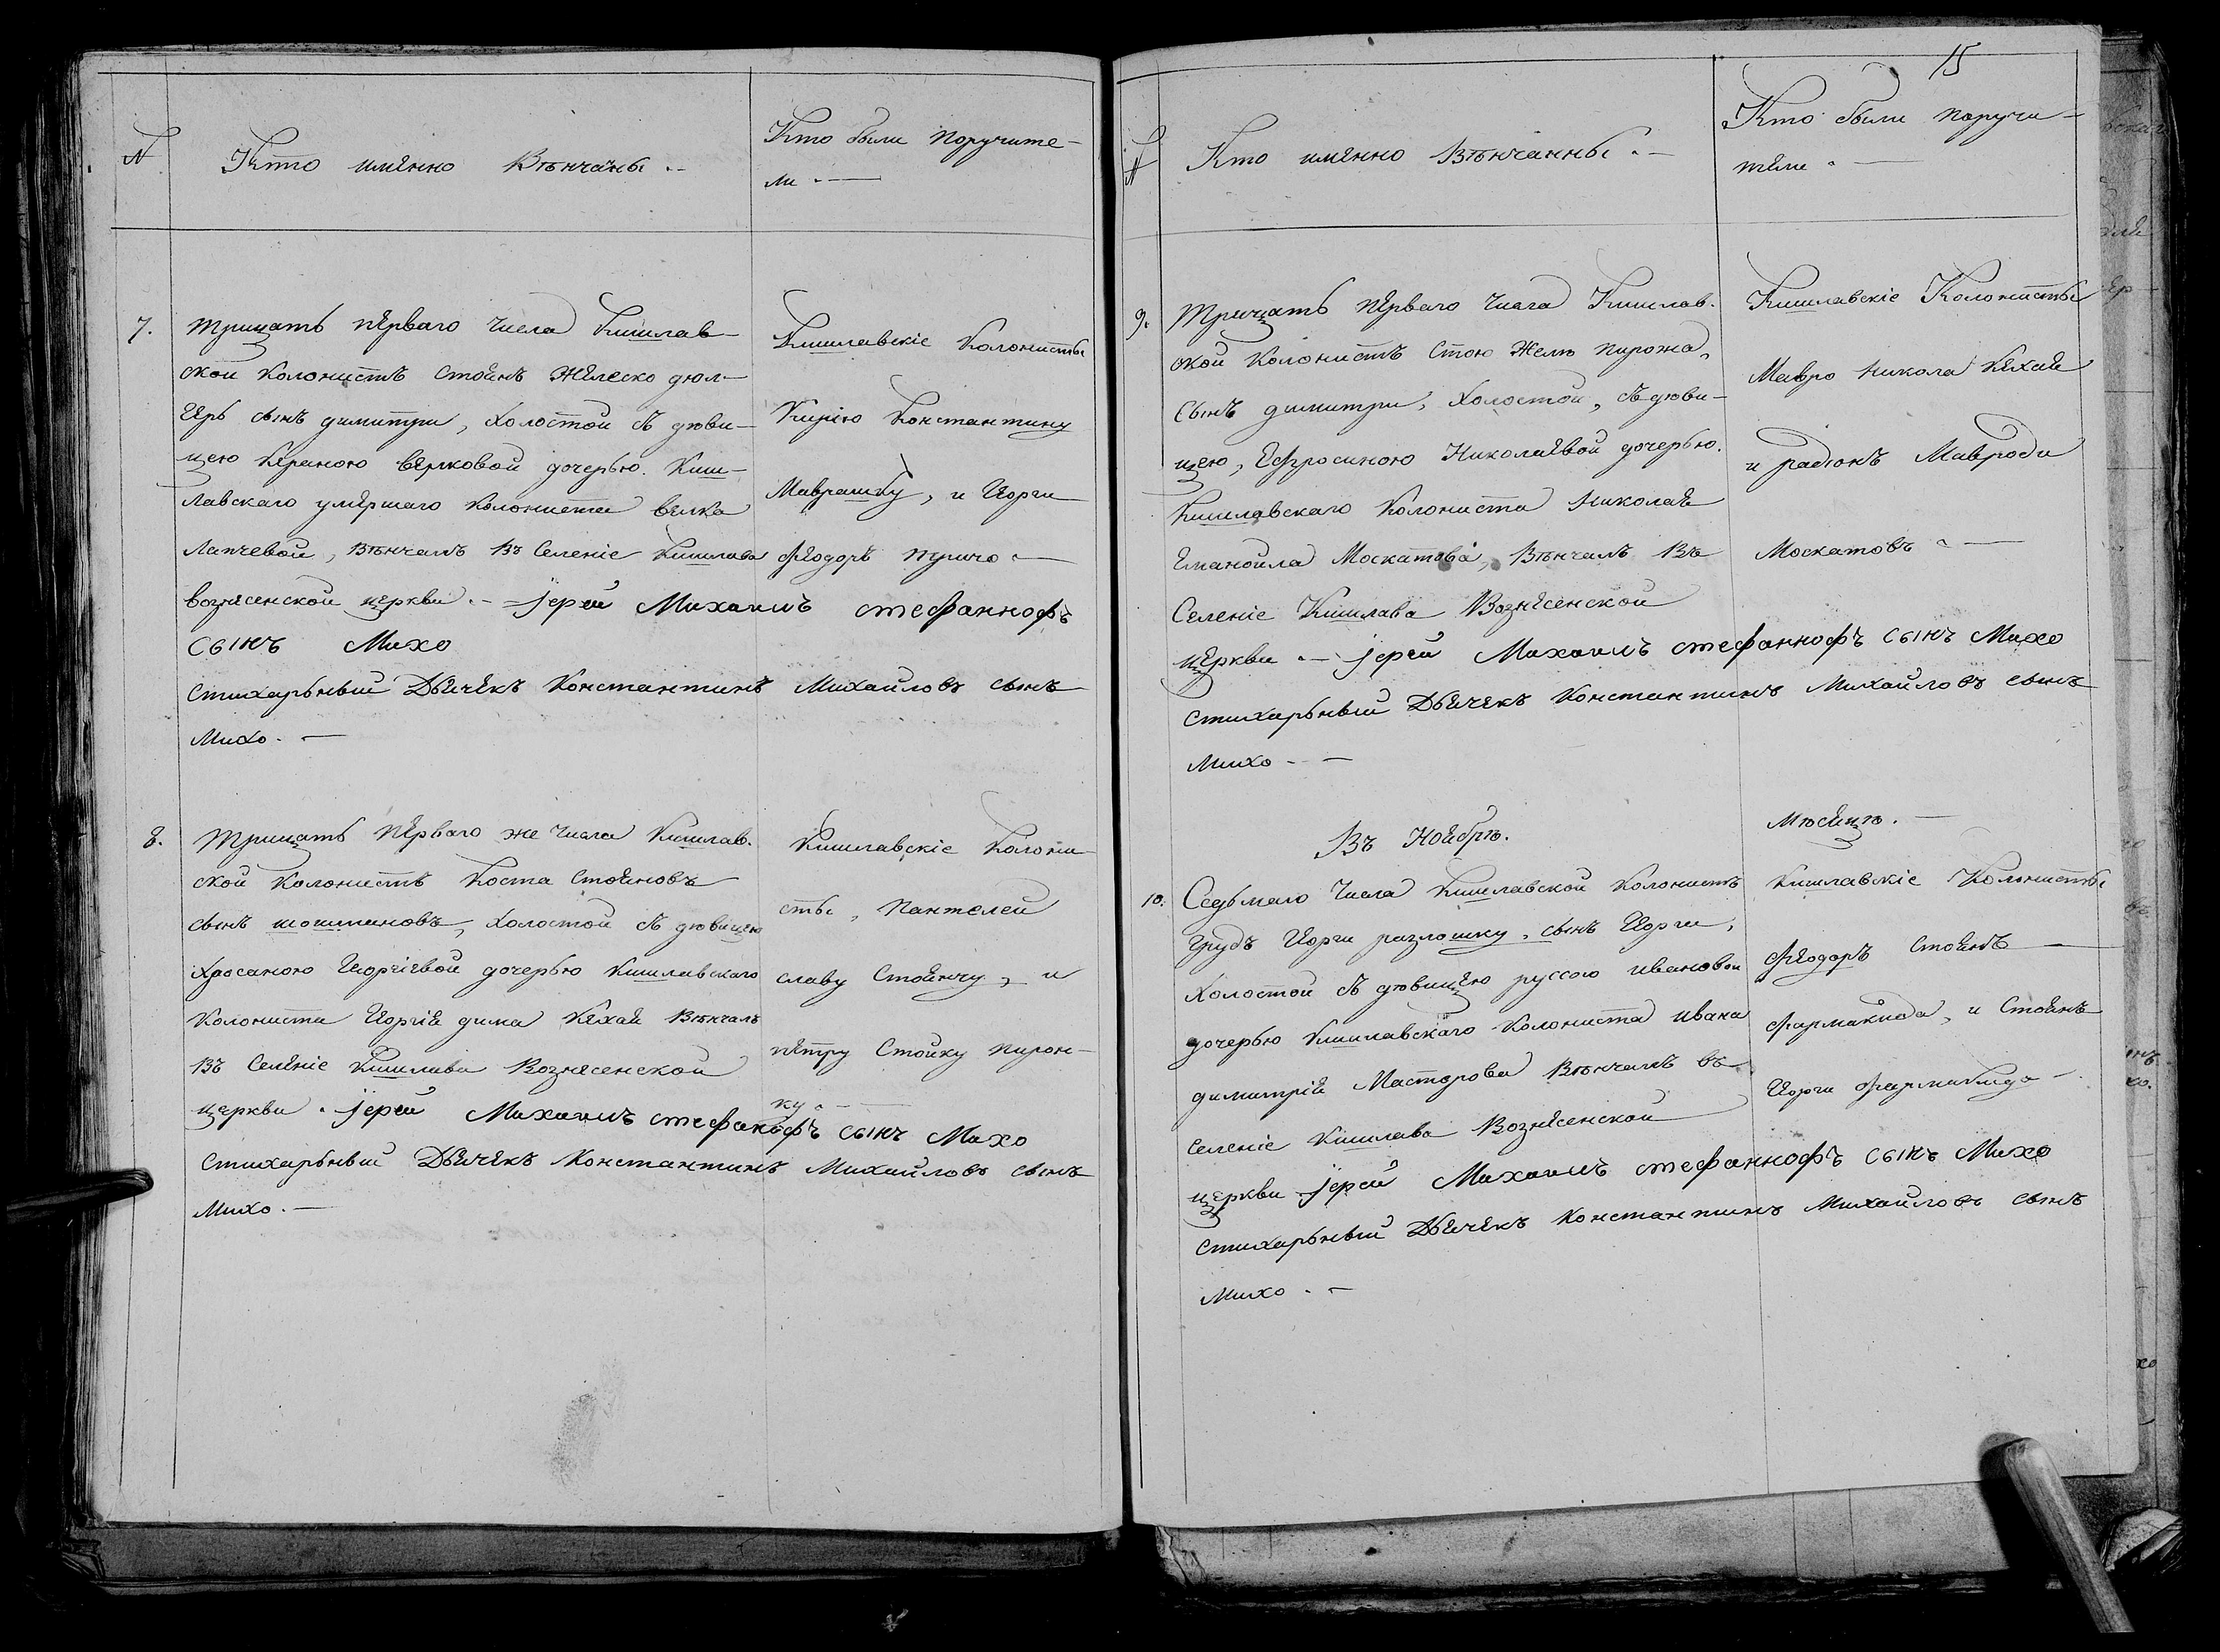 N
Кто имянно Вѣнчаны .-
Кто были поручите-
ли .-
7.
тритцать перваго числа Кишлав-
ской колонистъ Стоянъ Желеско дюл-
геръ сынъ димитри, холостой съ дѣви-
цею Кераною велковой дочерью. Киш-
лавскаго умершаго колониста велка
Лапчевой, вѣнчалъ въ Селеніе Кишлава
вознесенской церкви .- іерей Михаилъ стефанноф
сынъ Михо
стихарьный Дьячекъ Константинъ Михайловъ сынъ
Михо. -
Кишлавскіе Колонисты
Кирїю Константину
Маврашку, и Георги
Феодоръ пуличо .-
8.
тритцать перваго же числа Кишлав.
ской колонистъ Коста Стояновъ
сынъ шошминовъ, холостой съ дѣвицею
Хрсаною Георгіевой дочерью Кишлавскаго
колониста Георгія дима Кяхая вѣнчалъ
въ Селеніе Кишлава Вознесенской
церкви . іерей Михаилъ стефанофъ сынъ Михо
стихарьный Дьячекъ Константинъ Михайловъ сынъ
Михо. -
Кишлавскіе Колони-
сты, Пантелей
славу Стоянчу, и
петру Стойку пирон-
ку .-
15
N
Кто имянно Вѣнчанны .-
Кто были поручи-
тели .-
9.
Тритцать перваго числа Кишлав.
ской колонистъ Стою Желю пирожа,
сынъ димитри, холостой, съ дѣви-
цею, Ефросиною Николаевой дочерью.
Кишлавскаго Колониста Николая
Еманойла Москатова, Вѣнчалъ Въ
Селеніе Кишлава Вознесенской
церкви .- іерей Михаилъ стефаннофъ сынъ Михо
стихарьный Дьячекъ Константинъ Михайловъ сынъ
Михо - -
Кишлавскіе Колонисты
Мавро Никола Кяхая
и радіонъ Мавроди
Москатовъ .-
Въ Ноябрѣ.
Мѣсяцѣ. -
10.
Седьмаго числа Кишлавской колонистъ
Грудъ Георги разлошку, сынъ Георги,
холостой съ дѣвицею руссою ивановой
дочерью Кишлавскаго колониста ивана
димитрія Масторова вѣнчалъ въ
селеніе Кишлава Вознесенской
церкви іерей Михаилъ стефаннофъ сынъ Михо
стихарьный Дьячекъ Константинъ Михайловъ сынъ
Михо . -
Кишлавскіе Колонисты
Феодоръ Стоянъ
Фармакиода, и Стоянъ
Георги Фармакида -